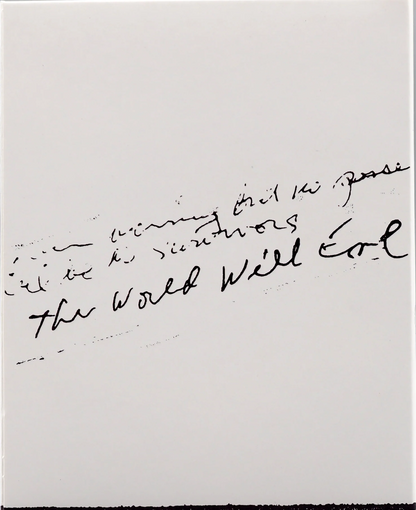 warning that no
be no survivors
The World Will End